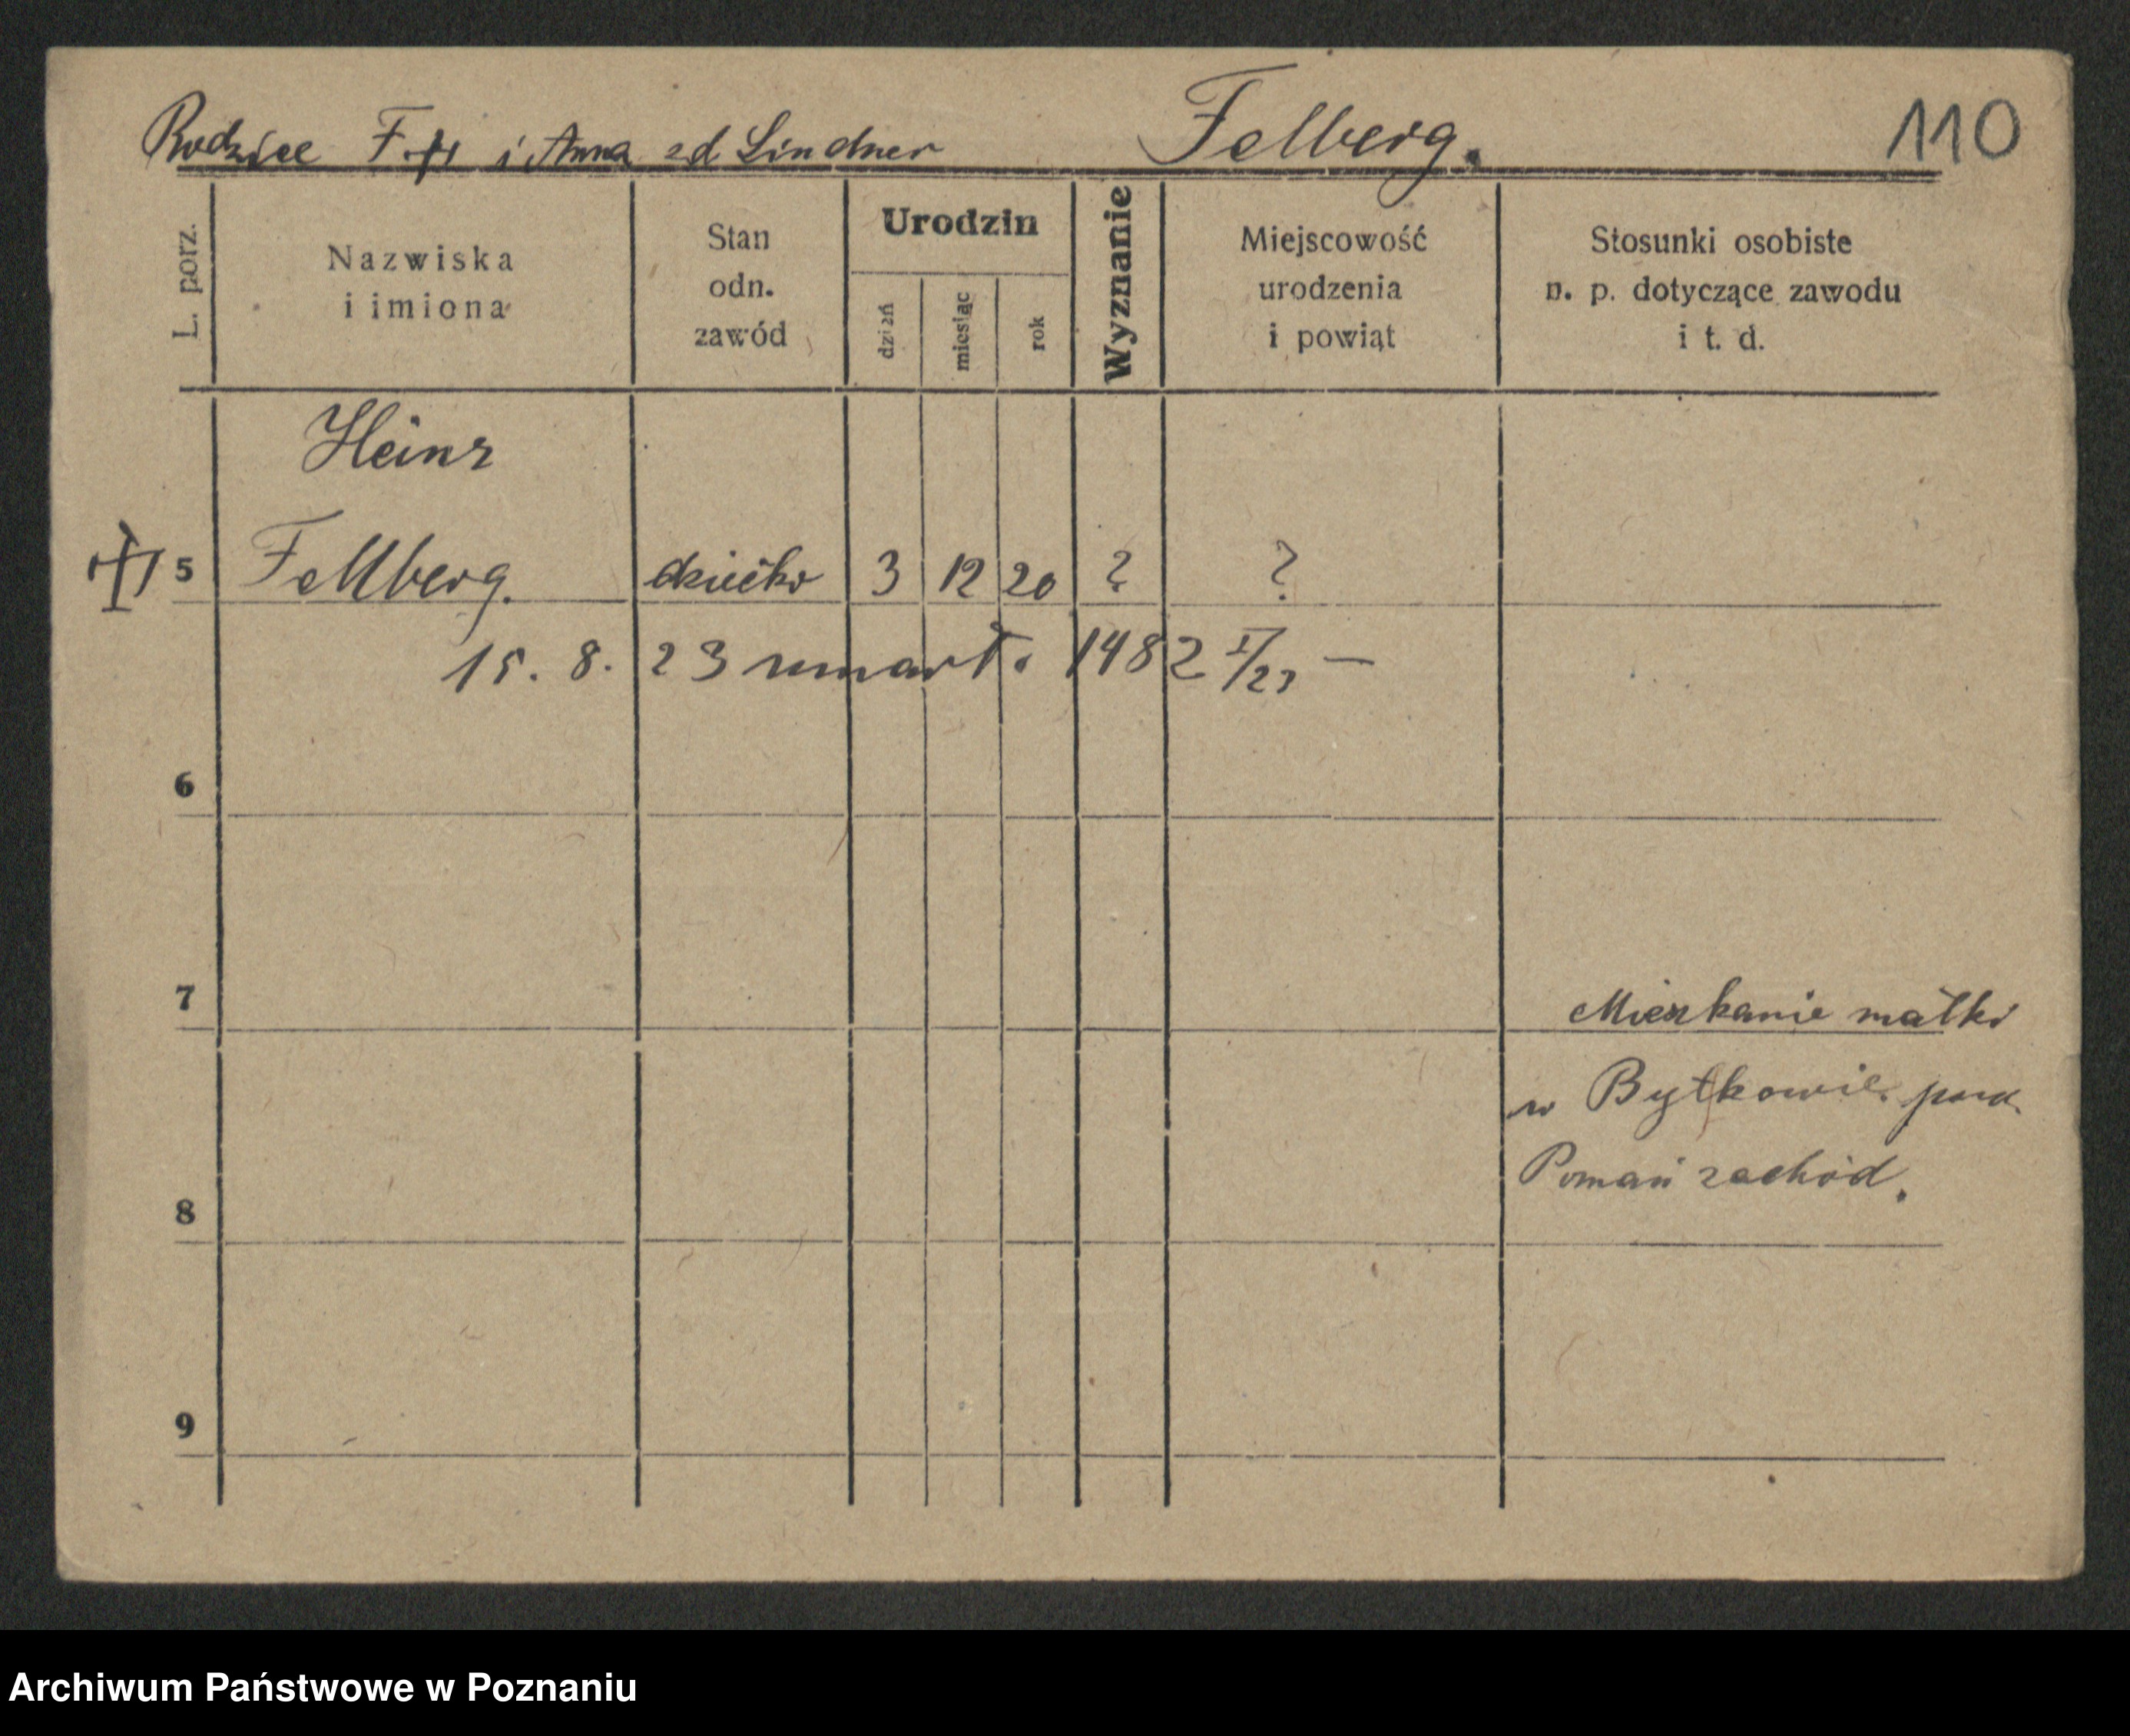 Rodzice F. i Anna zd Lindner Felberg. 110
L. porz.
Nazwiska
i imiona
Stan
odn.
zawód
Urodzin
dzień
miesiąc
rok
Wyznanie
Miejscowość
urodzenia
i powiąt
Stosunki osobiste
n. p. dotyczące zawodu
i t. d.
Heinz
5 Fellberg. dziecko 3 12 20 ? ?
15. 8. 23 umarł. 1482 I/23 —
6
7 Mieszkanie matki
w Bytkowie pow.
Poznań zachód.
8
9
Archiwum Państwowe w Poznaniu